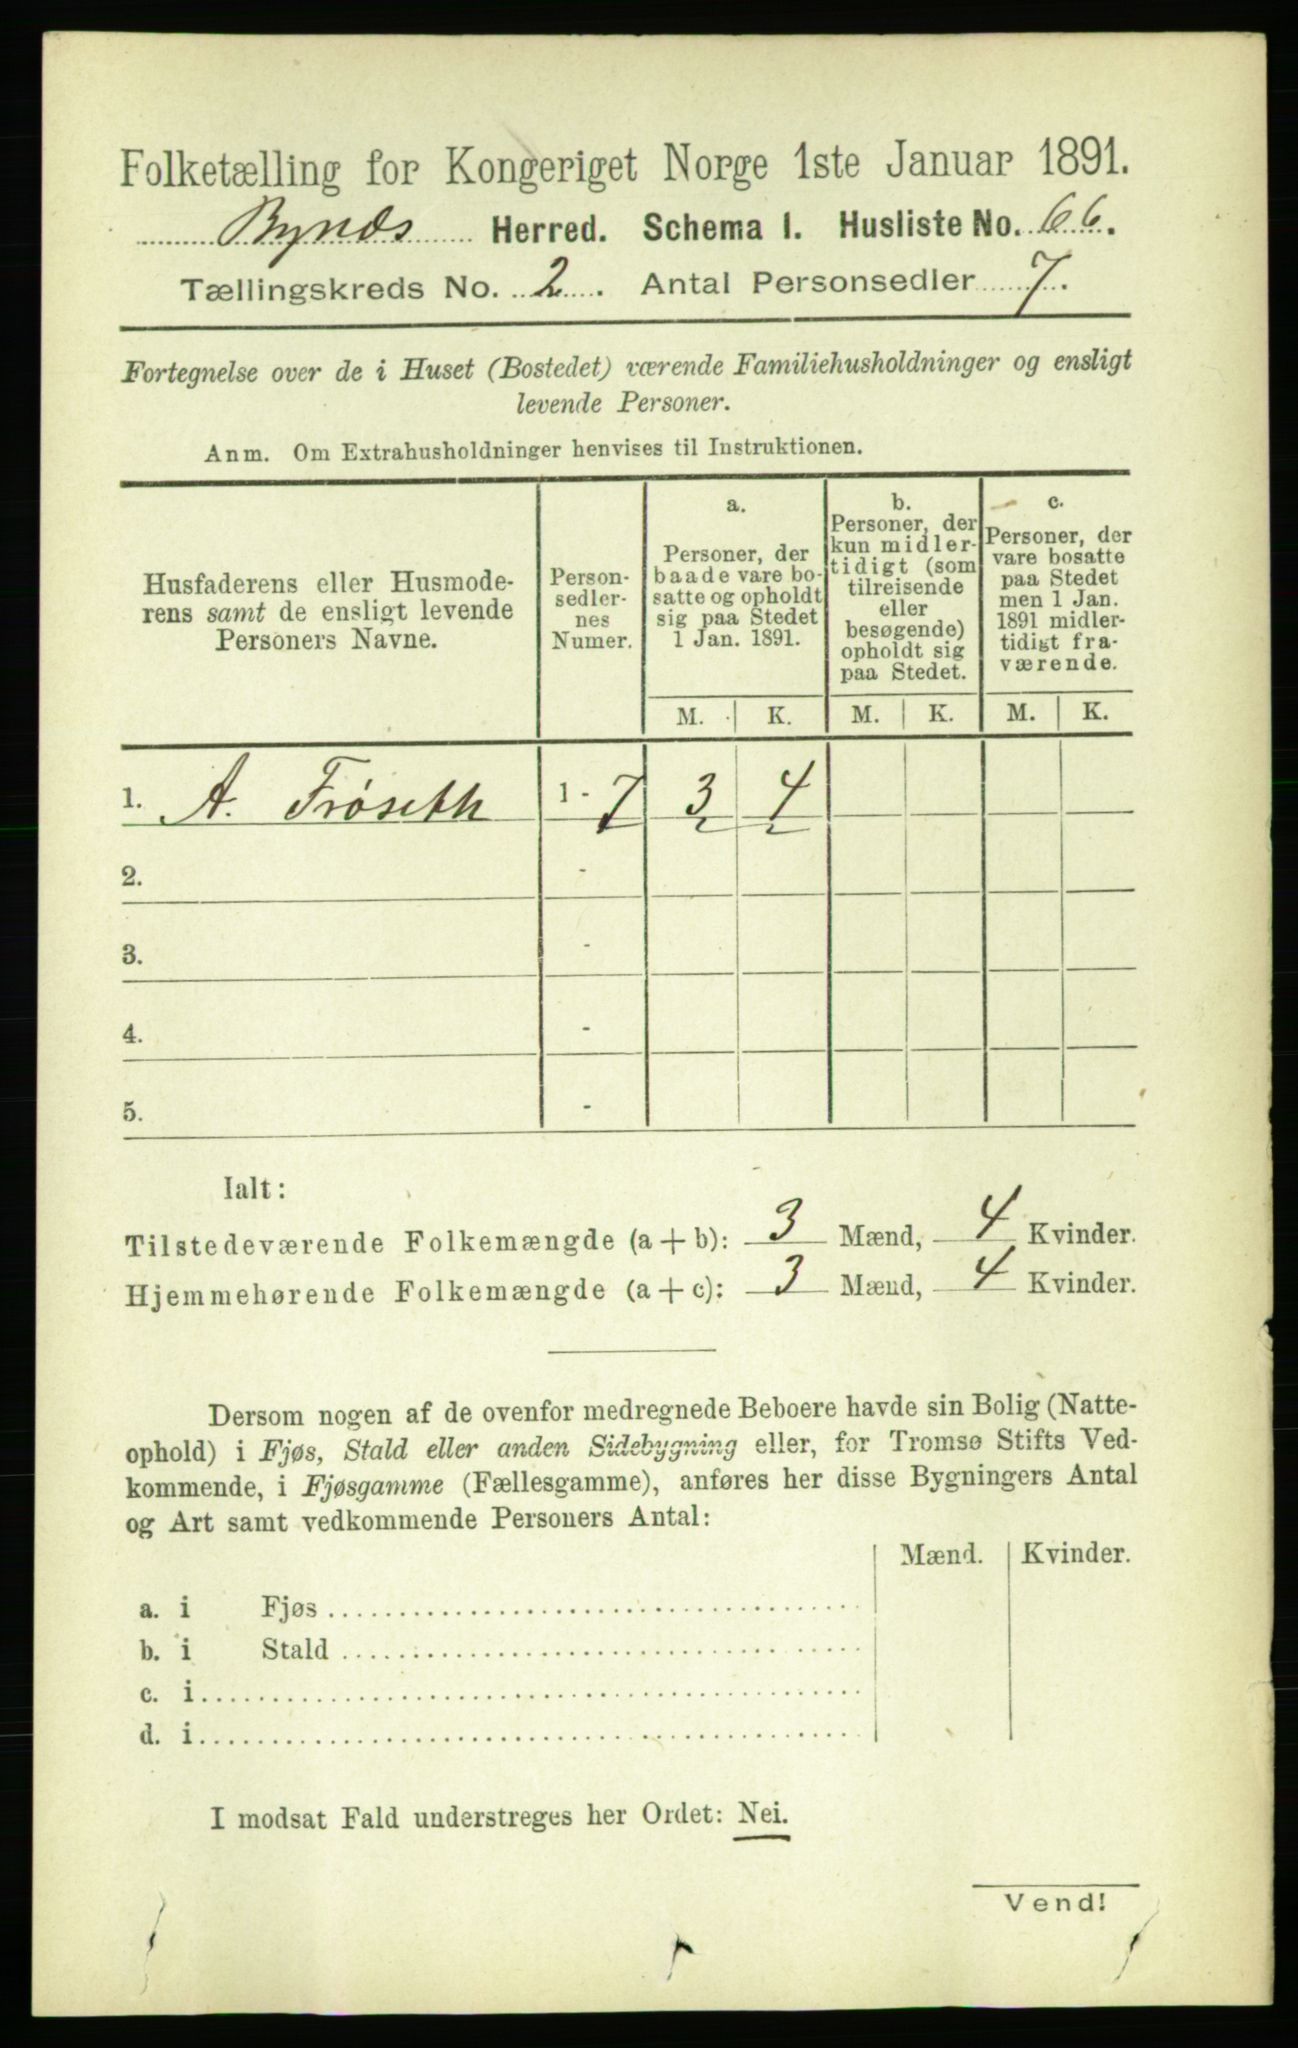 Folketælling for Kongeriget Norge 1ste Januar 1891.
Bynæs Herred. Schema I. Husliste No. 66.
Tællingskreds No. 2. Antal Personsedler 7.
Fortegnelse over de i Huset (Bostedet) værende Familiehusholdninger og ensligt
levende Personer.
Anm. Om Extrahusholdninger henvises til Instruktionen.
Husfaderens eller Husmode-
rens samt de ensligt levende
Personers Navne.
Person-
sedler-
nes
Numer.
a.
Personer, der
baade vare bo-
satte og opholdt
sig paa Stedet
1 Jan. 1891.
b.
Personer, der
kun midler-
tidigt (som
tilreisende
eller
besøgende)
opholdt sig
paa Stedet.
c.
Personer, der
vare bosatte
paa Stedet
men 1 Jan.
1891 midler-
tidigt fra-
værende.
M. K. M. K. M. K.
1. A. Frøseth 1 - 7 3 4
2. -
3. -
4. -
5. -
Ialt:
Tilstedeværende Folkemængde (a + b): 3 Mænd, 4 Kvinder.
Hjemmehørende Folkemængde (a + c): 3 Mænd, 4 Kvinder.
Dersom nogen af de ovenfor medregnede Beboere havde sin Bolig (Natte-
ophold) i Fjøs, Stald eller anden Sidebygning eller, for Tromsø Stifts Ved-
kommende, i Fjøsgamme (Fællesgamme), anføres her disse Bygningers Antal
og Art samt vedkommende Personers Antal:
Mænd. Kvinder.
a. i Fjøs
b. i Stald
c. i
d. i
I modsat Fald understreges her Ordet: Nei.
Vend!